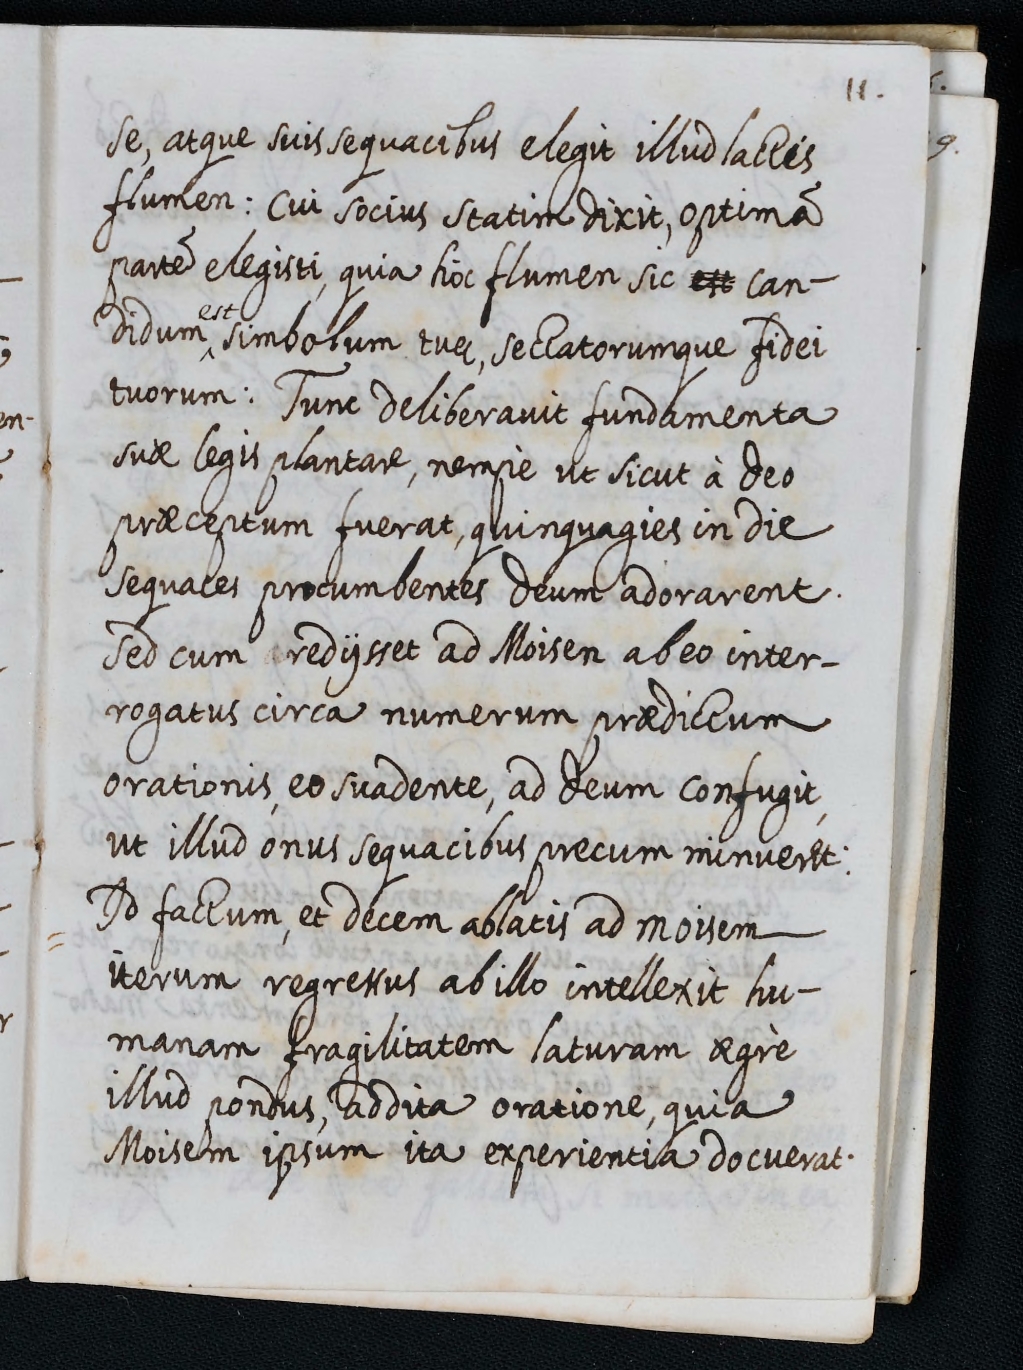 11.
se, atque suis sequacibus elegit illud lactis
flumen: Cui socius statim dixit, optimã
partẽ elegisti, quia hoc flumen sic est can-
didum est simbolum tuę, sectatorumque fidei
tuorum: Tunc deliberauit fundamenta
suæ legis plantare, nempè ut sicut à deo
præceptum fuerat, quinquagies in die
sequaces procumbentes deum adorarent.
Sed cum redijsset ad Moisen ab eo inter-
rogatus circa numerum prædictum
orationis, eo suadente, ad deum confugit,
ut illud onus sequacibus precum minueret:
Id factum, et decem ablatis ad moisem
iterum regressus ab illo intellexit hu-
manam fragilitatem laturam ægrè
illud pondus, addita oratione, quia
Moisem ipsum ita experientia docuerat.
9.